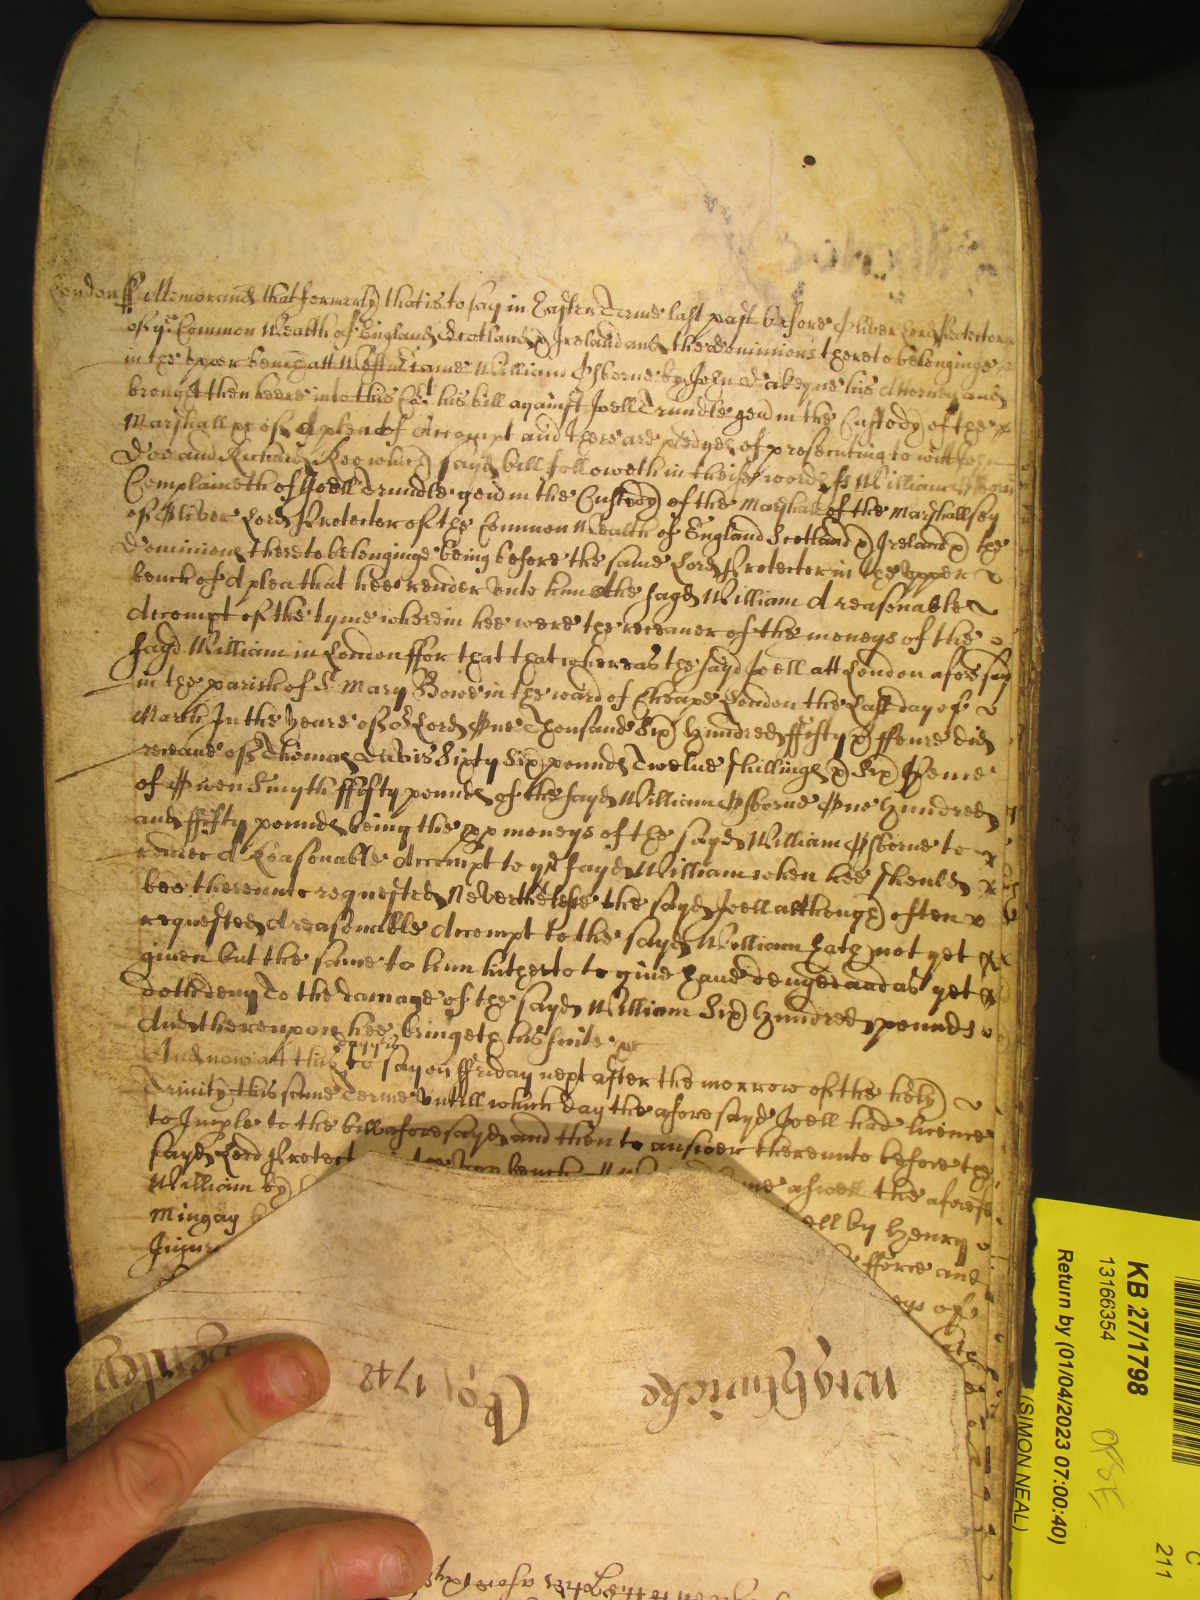 London ss Memorand that formerly that is to say in Easter Terme last past before Oliver Lord Protector
of ye Common Wealth of England Scotland & Ireland and the dominions thereto belonginge
in the upper bench att Westm came William Osborne by John his Attorney and
brought then heere into this Cort his bill against Joell Trundle gend in the Custody of the
Marshall &c of A plea of Accompt and there are pledges of prosecuting to witt John
Doe and Richard Roe which sayd bill followeth in theise words ss William
Complaineth of Joell Trundle gend in the Custody of the Marshall of the Marshallsey
of Oliver Lord Protector of the Common Wealth of England Scotland & Ireland & the
Dominions thereto belonginge being before the same Lord Protector in the upper
bench of A plea that hee render unto him the sayd William A reasonable
Accompt of the tyme wherein hee were the receaver of the moneys of the
sayd William in London ffor that that whereas the sayd Joell att London aforesayd
in the parish of St Mary Bowe in the ward of Cheape London the Last day of
March In the Yeare of or Lord One Thousand Six Hundred ffifty & ffoure did
receave of Thomas Davis Sixty Six pounds Twelve shillings & Six Pence
of Owen Smyth ffifty pounds of the sayd William Osborne One Hundred
and ffifty pounds being the pp moneys of the sayd William Osborne to
render A Reasonable Accompt to ye sayd William when hee should
bee thereunto requested Neverthelesse the sayd Joell although often
requested A reasonable Accompt to the sayd William hath not yet
given but the same to him hitherto to give have denyed and as yet
doth deny To the damage of the sayd William Six Hundred pounds
And thereupon hee bringeth his suite &c
And now att this day that is to say on ffriday next after the morrow of the holy
Trinity this same Terme Untill which day the aforesayd Joell had licence
to Imple to the bill aforesayd and then to answer thereunto before the
sayd Lord Protect bench me aswell the aforesd
William by ell by Henry
Mingay fforce and
Injury eys of
KB 27/1798
13166354
Return by (01/04/2023 07:00:40)
(SIMON NEAL)
C
211
Wrightwicke
Ro 1742